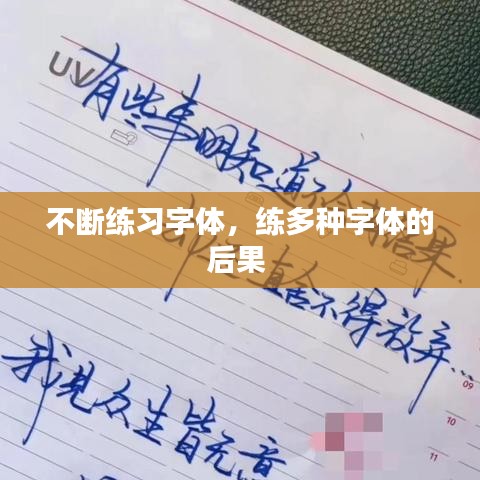 UV
有些事明知道
果.
不断练习字体，练多种字体的
后果
直舍不得放弃...
09
10
我见众生皆无
11